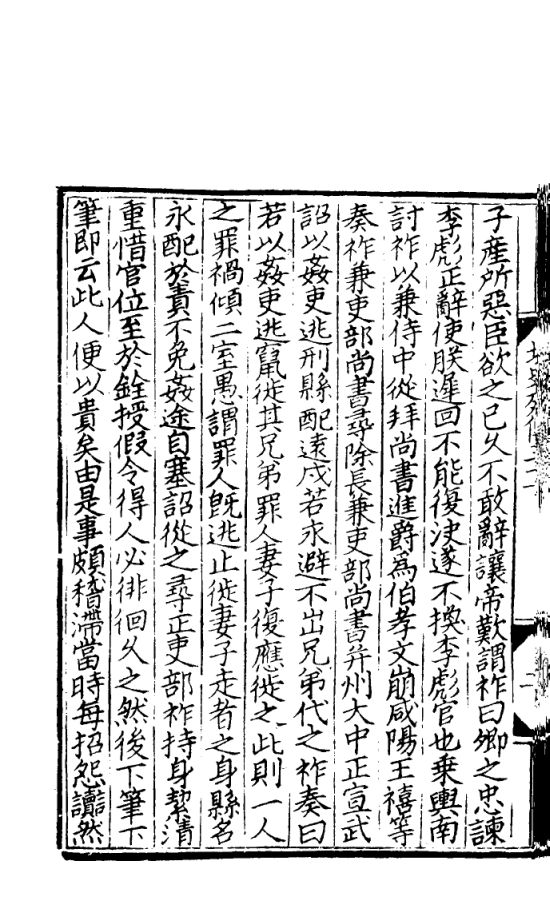 子產所惡臣欲之已久不敢辭讓帝歎謂祚曰卿之忠諫
李彪正辭使朕遲回不能復决遂不換李彪官也乘輿南
討祚以兼侍中從拜尚書進爵爲伯孝文崩咸陽王禧等
奏祚兼吏部尚書尋除長兼吏部尚書并州大中正宣武
詔以姦吏逃刑縣配遠戍若永避不出兄弟代之祚奏曰
若以姦吏逃竄徙其兄弟罪人妻子復應徙之此則一人
之罪禍傾二室愚謂罪人旣逃止徙妻子走者之身縣名
永配於責不免姦途自塞詔從之尋正吏部祚持身絜清
重惜官位至於銓授假令得人必徘徊久之然後下筆下
筆即云此人便以貴矣由是事頗稽滯當時每招怨讟然